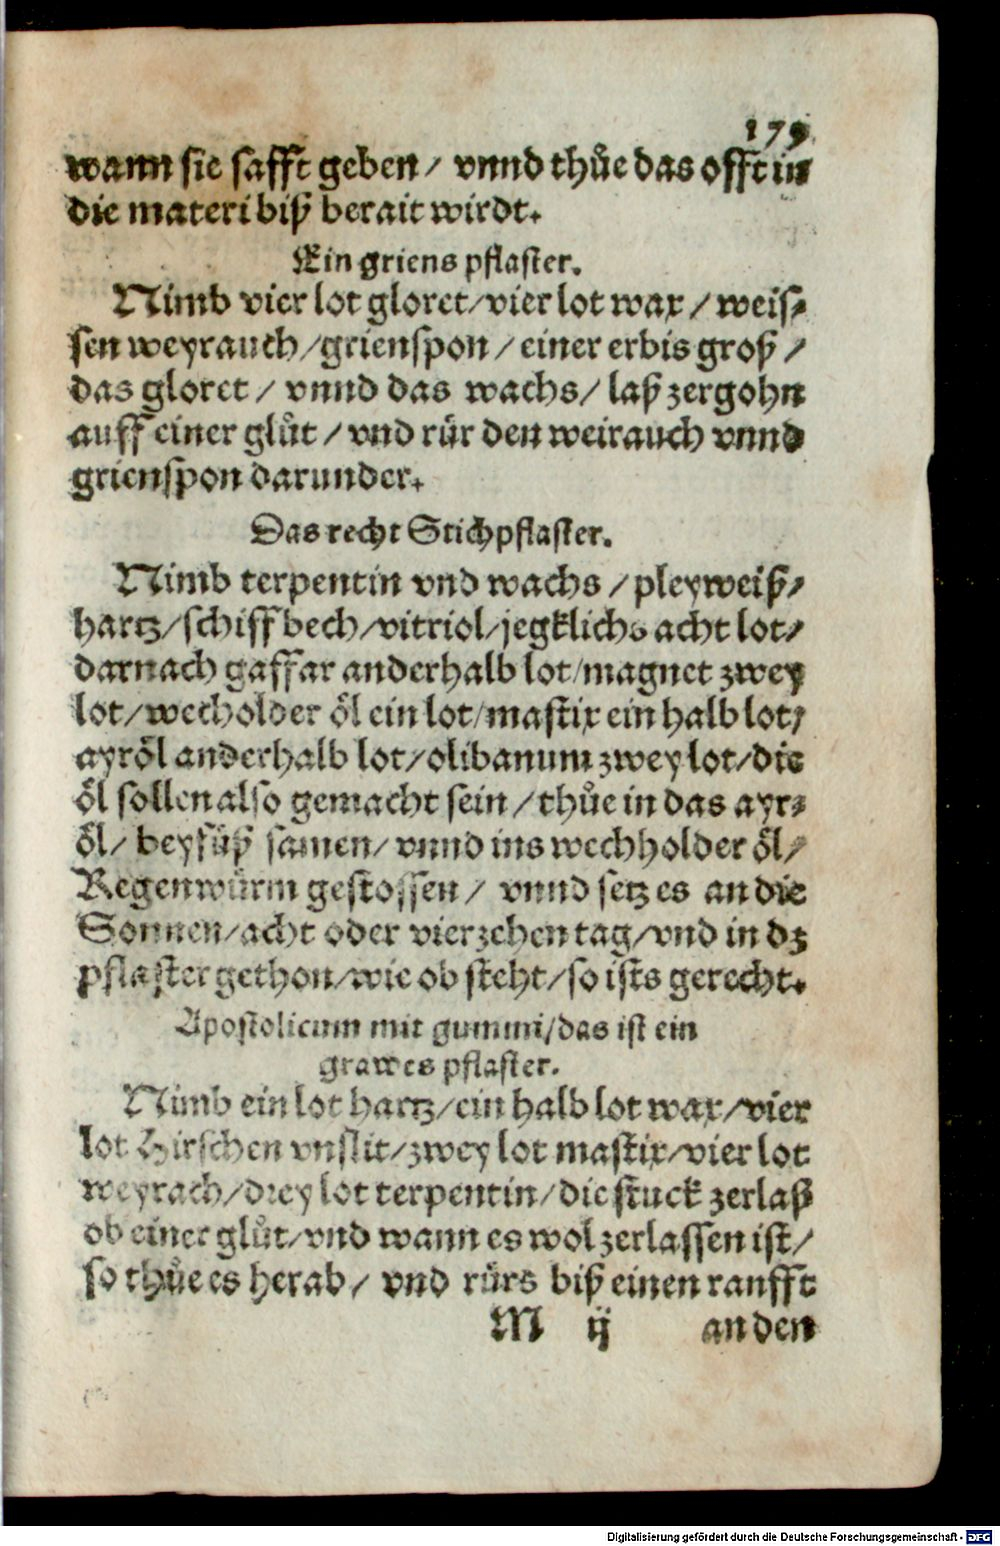 179
wann sie safft geben/ vnnd thuͤe das offt in
die materi biß berait wirdt.
Ein griens pflaster.
Nimb vier lot gloret/vier lot wax/weis⸗
sen weyrauch/grienspon/einer erbis groß/
das gloret/ vnnd das wachs/ laß zergohn
auff einer gluͤt/vnd rür den weirauch vnnd
grienspon darunder.
Das recht Stichpflaster.
Nimb terpentin vnd wachs/pleyweiß/
hartz/schiffbech/vitriol/jegklichs acht lot/
darnach gaffar anderhalb lot/magnet zwey
lot/wecholder öl ein lot/mastix ein halb lot/
ayröl anderhalb lot/olibanum zwey lot/die
öl sollen also gemacht sein/thuͤe in das ayr⸗
öl/ beyfüß samen/ vnnd ins wechholder öl/
Regenwürm gestossen/ vnnd setz es an die
Sonnen/acht oder vierzehen tag/vnd in dz
pflaster gethon/wie ob steht/so ists gerecht.
Apostolicum mit gummi/das ist ein
grawes pflaster.
Nimb ein lot hartz/ein halb lot wax/vier
lot Hirschen vnslit/zwey lot mastix/vier lot
weyrach/drey lot terpentin/die stuck zerlaß
ob einer gluͤt/vnd wann es wol zerlassen ist/
so thuͤe es herab/ vnd rürs biß einen ranfft
M ij an den
Digitalisierung gefördert durch die Deutsche Forschungsgemeinschaft - DFG